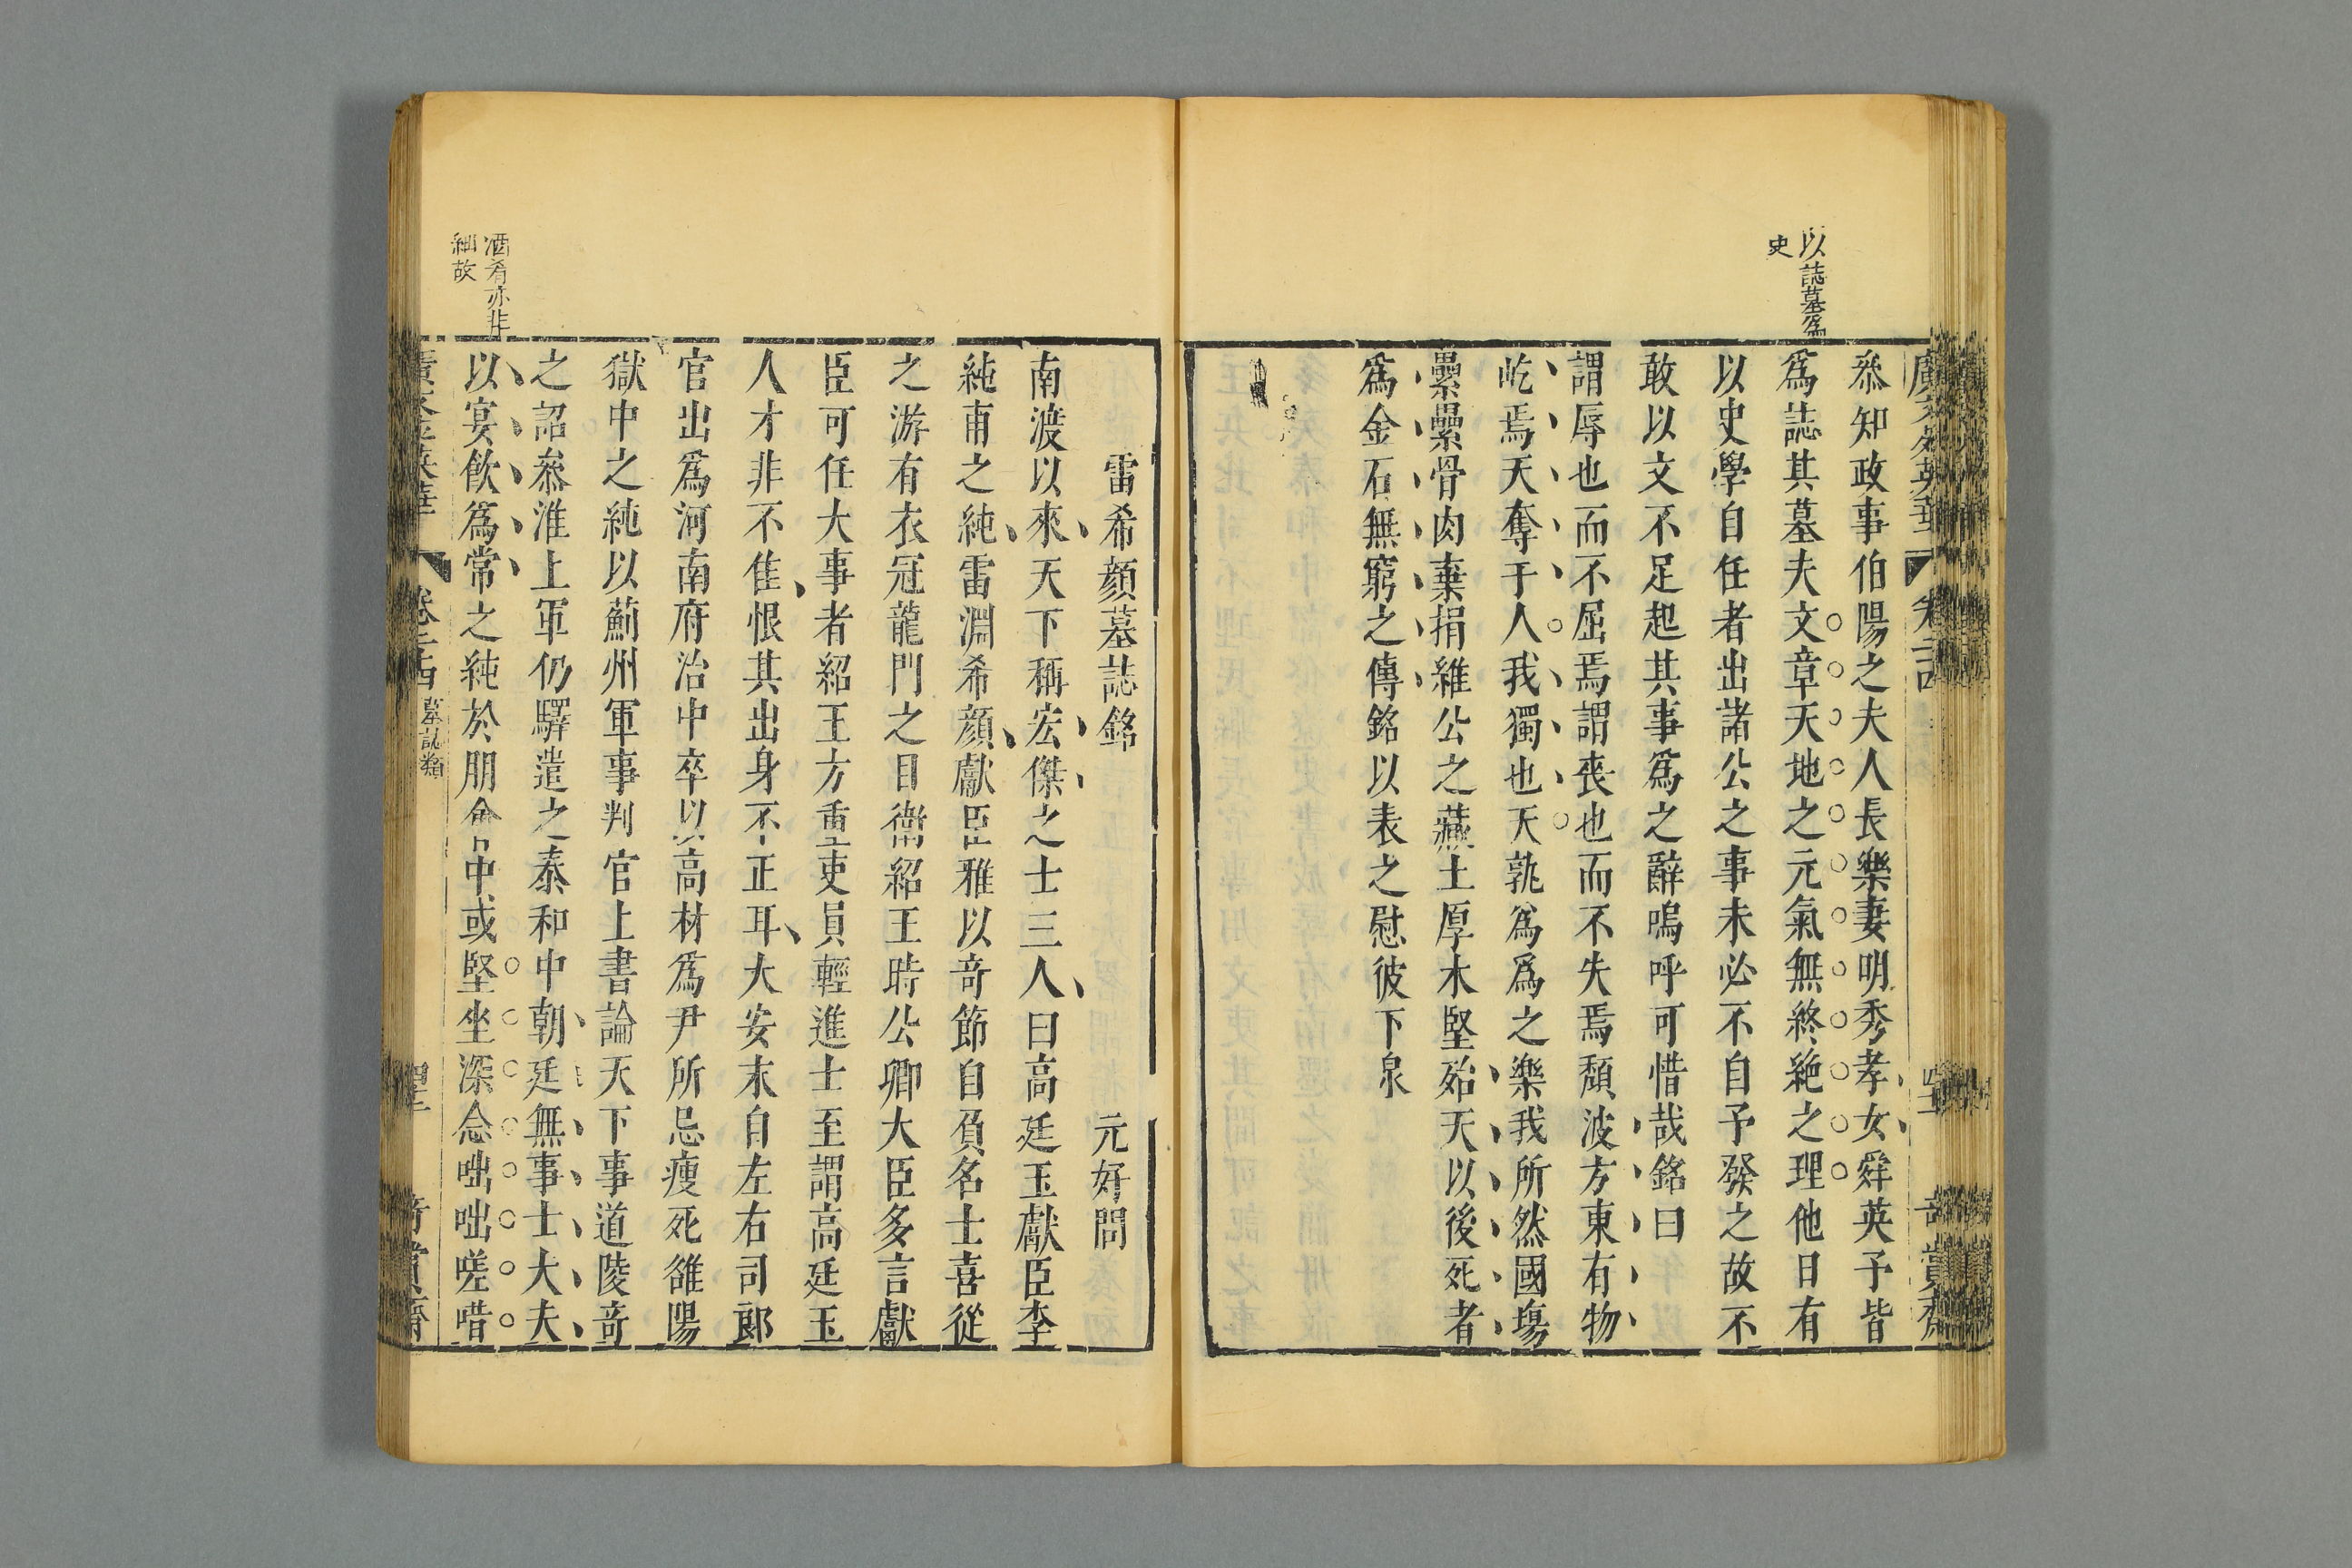 以誌墓爲
史
叅知政事伯陽之夫人長樂妻明秀孝女舜英予皆
爲誌其墓夫文章天地之元氣無終絶之理他日有
以史學自任者出諸公之事未必不自予發之故不
敢以文不足起其事爲之辭嗚呼可惜哉銘曰
謂辱也而不屈焉謂喪也而不失焉頽波方東有物
屹焉天奪于人我獨也天孰爲爲之樂我所然國塲
纍纍骨肉棄捐維公之藏土厚木堅殆天以後死者
爲金石無窮之傳銘以表之慰彼下泉
雷希顏墓誌銘
元好問
南渡以來天下稱宏傑之士三人曰高廷玉獻臣李
純甫之純雷淵希顏獻臣雅以竒節自負名士喜從
之游有衣冠龍門之目衛紹王時公卿大臣多言獻
臣可任大事者紹王方重吏員輕進士至謂高廷玉
人才非不佳恨其出身不正耳大安末自左右司郎
官出爲河南府治中卒以高材爲尹所忌瘐死雒陽
獄中之純以薊州軍事判官上書論天下事道陵竒
之詔叅淮上軍仍驛遣之泰和中朝廷無事士大夫
以宴飲爲常之純於朋會中或堅坐深念咄咄嗟唶
酒肴亦非
細故
墓誌類